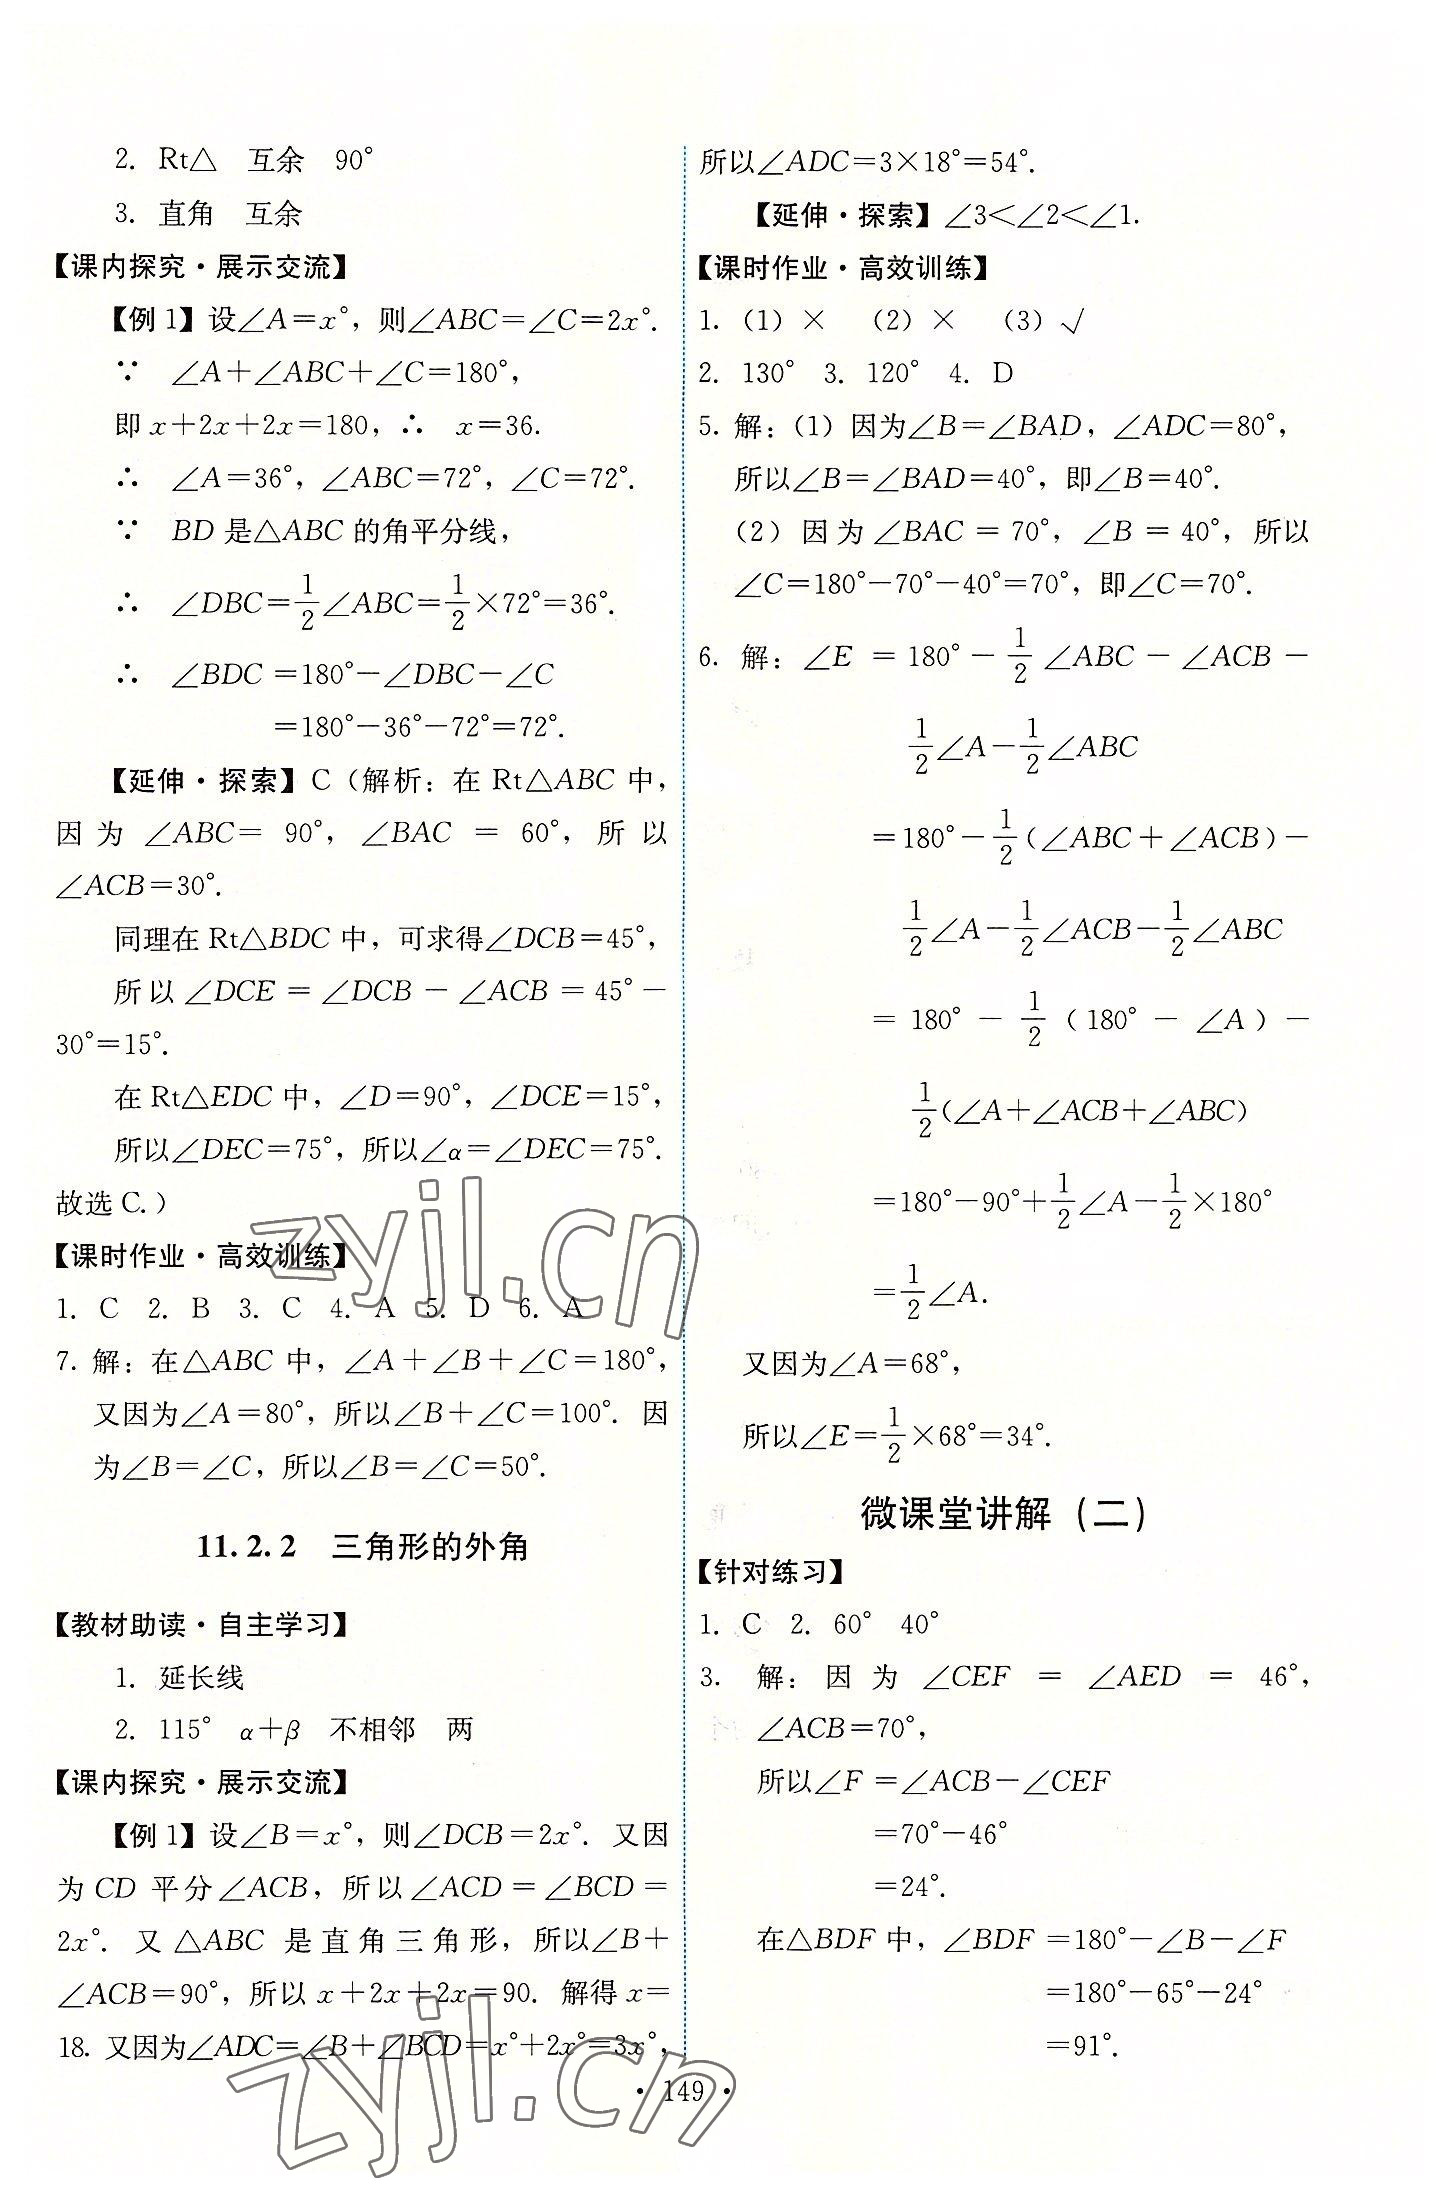 2. Rt△　互余　90°
3. 直角　互余
【课内探究·展示交流】
【例1】设∠A=x°，则∠ABC=∠C=2x°.
∵　∠A+∠ABC+∠C=180°，
即x+2x+2x=180，∴　x=36.
∴　∠A=36°，∠ABC=72°，∠C=72°.
∵　BD是△ABC的角平分线，
∴　∠DBC=1/2∠ABC=1/2×72°=36°.
∴　∠BDC=180°-∠DBC-∠C
=180°-36°-72°=72°.
【延伸·探索】C（解析：在Rt△ABC中，
因为∠ABC=90°，∠BAC=60°，所以
∠ACB=30°.
同理在Rt△BDC中，可求得∠DCB=45°，
所以∠DCE=∠DCB-∠ACB=45°-
30°=15°.
在Rt△EDC中，∠D=90°，∠DCE=15°，
所以∠DEC=75°，所以∠α=∠DEC=75°.
故选C.）
【课时作业·高效训练】
1. C　2. B　3. C　4. A　5. D　6. A
7. 解：在△ABC中，∠A+∠B+∠C=180°，
又因为∠A=80°，所以∠B+∠C=100°. 因
为∠B=∠C，所以∠B=∠C=50°.
11.2.2　三角形的外角
【教材助读·自主学习】
1. 延长线
2. 115°　α+β　不相邻　两
【课内探究·展示交流】
【例1】设∠B=x°，则∠DCB=2x°. 又因
为CD平分∠ACB，所以∠ACD=∠BCD=
2x°. 又△ABC是直角三角形，所以∠B+
∠ACB=90°，所以x+2x+2x=90. 解得x=
18. 又因为∠ADC=∠B+∠BCD=x°+2x°=3x°，
所以∠ADC=3×18°=54°.
【延伸·探索】∠3<∠2<∠1.
【课时作业·高效训练】
1.（1）×　（2）×　（3）√
2. 130°　3. 120°　4. D
5. 解：（1）因为∠B=∠BAD，∠ADC=80°，
所以∠B=∠BAD=40°，即∠B=40°.
（2）因为∠BAC=70°，∠B=40°，所以
∠C=180°-70°-40°=70°，即∠C=70°.
6. 解：∠E=180°-1/2∠ABC-∠ACB-
1/2∠A-1/2∠ABC
=180°-1/2（∠ABC+∠ACB）-
1/2∠A-1/2∠ACB-1/2∠ABC
=180°-1/2（180°-∠A）-
1/2(∠A+∠ACB+∠ABC)
=180°-90°+1/2∠A-1/2×180°
=1/2∠A.
又因为∠A=68°，
所以∠E=1/2×68°=34°.
微课堂讲解（二）
【针对练习】
1. C　2. 60°　40°
3. 解：因为∠CEF=∠AED=46°，
∠ACB=70°，
所以∠F=∠ACB-∠CEF
=70°-46°
=24°.
在△BDF中，∠BDF=180°-∠B-∠F
=180°-65°-24°
=91°.
·149·
zyjl.cn
zyjl.cn